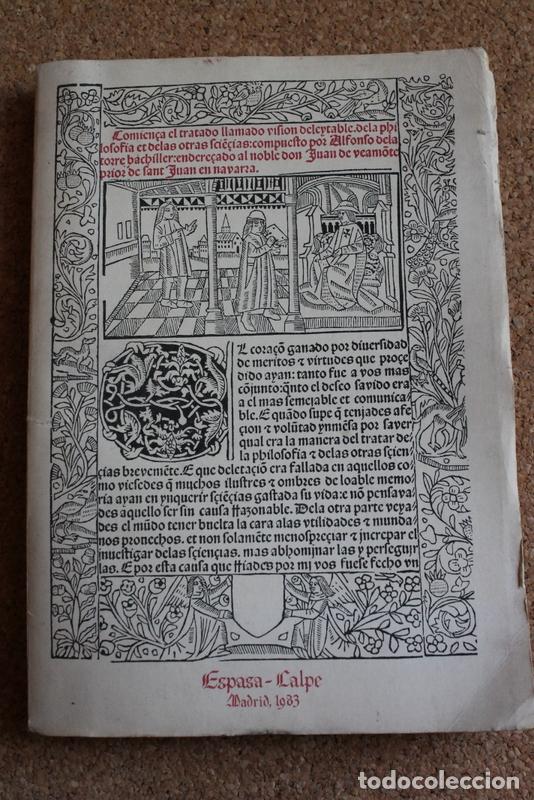 Comiença el tratado llamado vision deleytable. dela phi
losofia et delas otras sciẽçias: compuesto por Alfonso dela
torre bachiller: endereçado al noble don Juan de veamõte
prior de sant Juan en navarra.
EL coraçõ ganado por diuersidad
de meritos & virtudes que proçe
dido ayan: tanto fue a vos mas
cõjunto: q̃nto el deseo savido era
a el mas semejable et comunica
ble. E quãdo supe q̃ tenjades afe
çion & volũtad ynmẽsa por saver
qual era la manera del tratar de
la philosofia & delas otras sçien
çias brevemẽte. E que delectaçiõ era fallada en aquellos co
mo viesedes q̃ muchos ilustres & ombres de loable memo
ria ayan en ynquerir sçiẽçias gastada su vida: e nõ pensava
des aquello ser sin causa rrazonable. Dela otra parte veya
des el mũdo tener buelta la cara alas vtilidades & munda
nos prouechos. et non solamẽte menospreçiar & increpar el
inuestigar delas sçiençias. mas abhominar las y perseguir
las. E por esta causa que rriades por mj vos fuese fecho vn
Espasa-Calpe
Madrid, 1983
todocoleccion